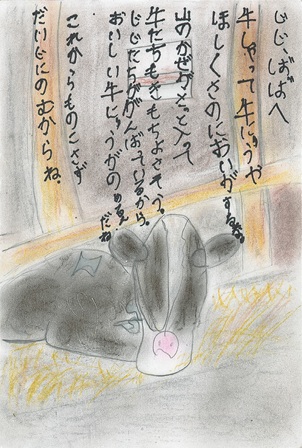 じじ、ばばへ
牛しゃって牛にゅうや
ほしくさのにおいがするね。
山のかぜがさぁっと入って
牛たちもきもちよさそう。
じじたちががんばっているから、
おいしい牛にゅうがのめるんだね。
これからものこさず
だいじにのむからね。